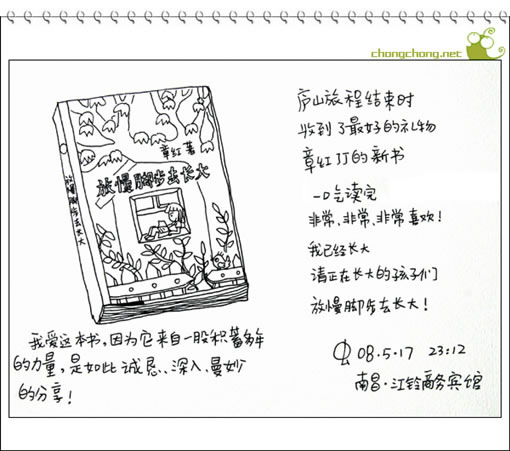 chongchong.net
章红 著
放慢脚步去长大
放慢脚步去长大
庐山旅程结束时
收到了最好的礼物
章红JJ的新书
一口气读完
非常、非常、非常喜欢！
我已经长大
请正在长大的孩子们
放慢脚步去长大！
08.5.17 23:12
南昌·江铃商务宾馆
我爱这本书，因为它来自一股积蓄多年
的力量，是如此诚恳、深入、曼妙
的分享！